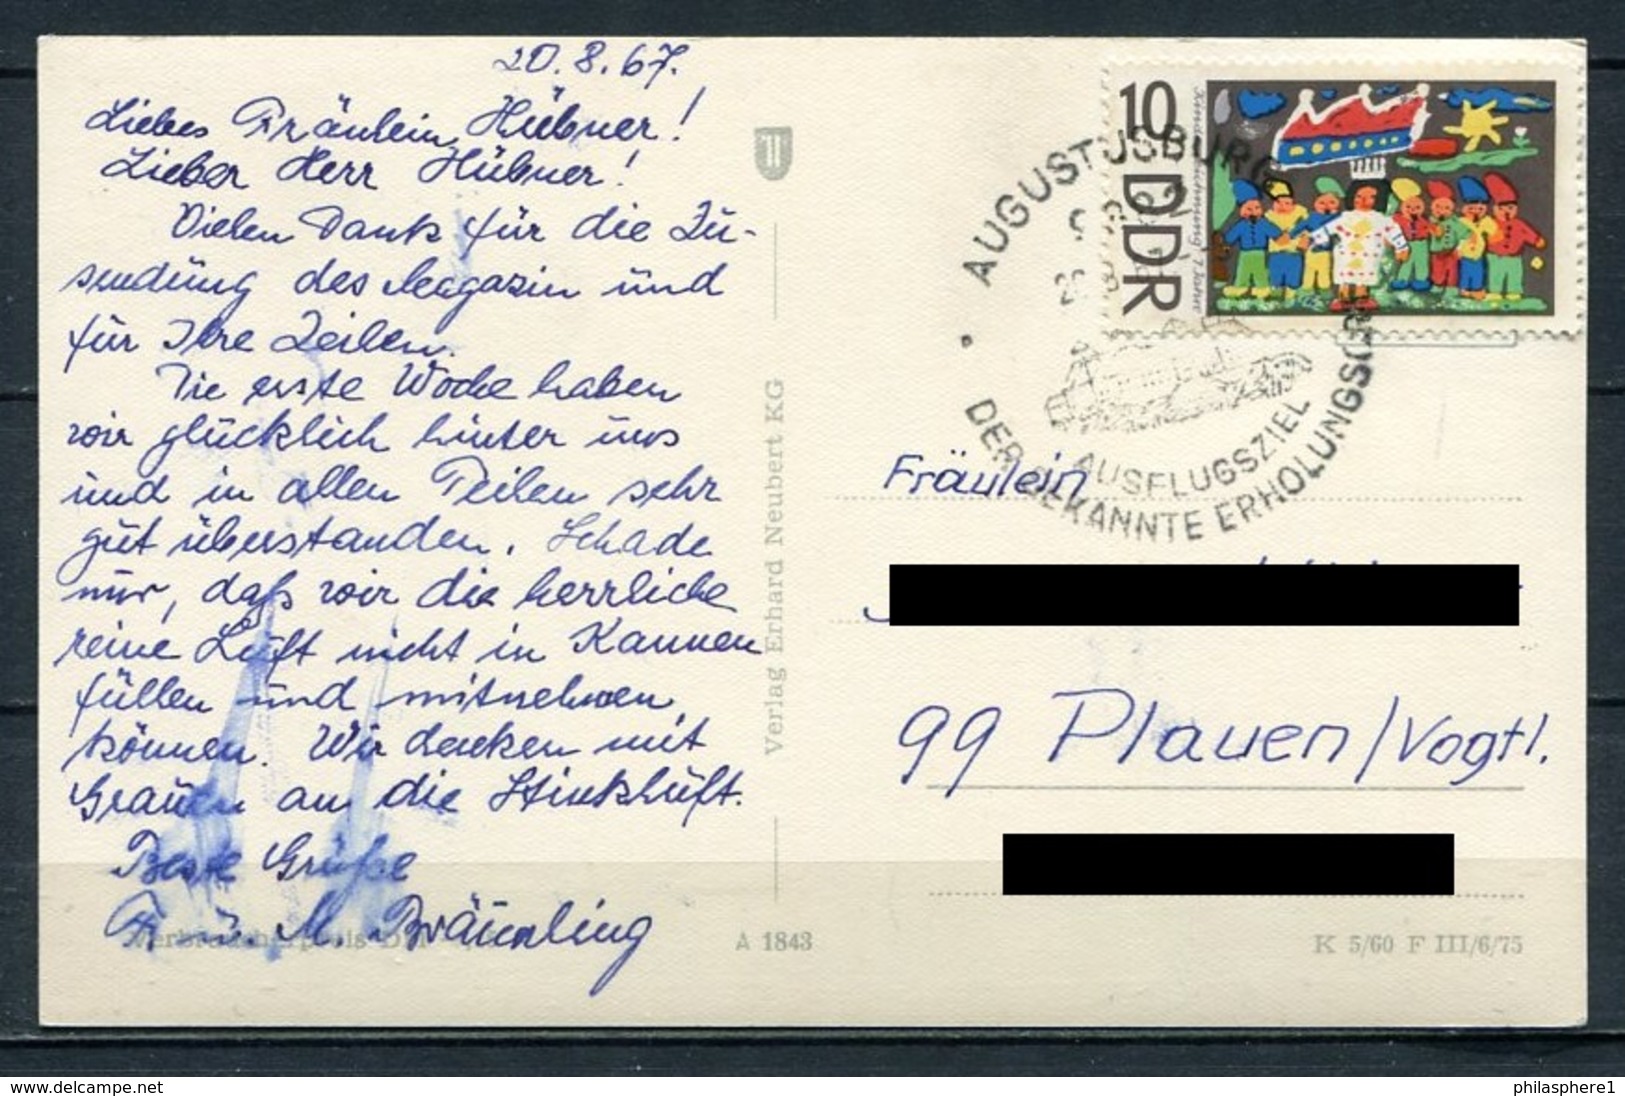 20.8.67.
Liebes Fräulein Hübner!
Lieber Herr Hübner!
Vielen Dank für die Zu-
sendung des Magazin und
für Ihre Zeilen.
Die erste Woche haben
wir glücklich hinter uns
und in allen Teilen sehr
gut überstanden. Schade
nur, daß wir die herrliche
reine Luft nicht in Kannen
füllen und mitnehmen
können. Wir denken mit
Grauen an die Stinkluft.
Beste Grüße
Fr. u. M. Bräunling
Verbraucherpreis DM
A 1843
Verlag Erhard Neubert KG
10
DDR
Kinderzeichnung 7 Jahre
AUGUSTUSBURG
AUSFLUGSZIEL
DER BEKANNTE ERHOLUNGSORT
Fräulein
99 Plauen/Vogtl.
K 5/60 F III/6/75
www.delcampe.net
philasphere1